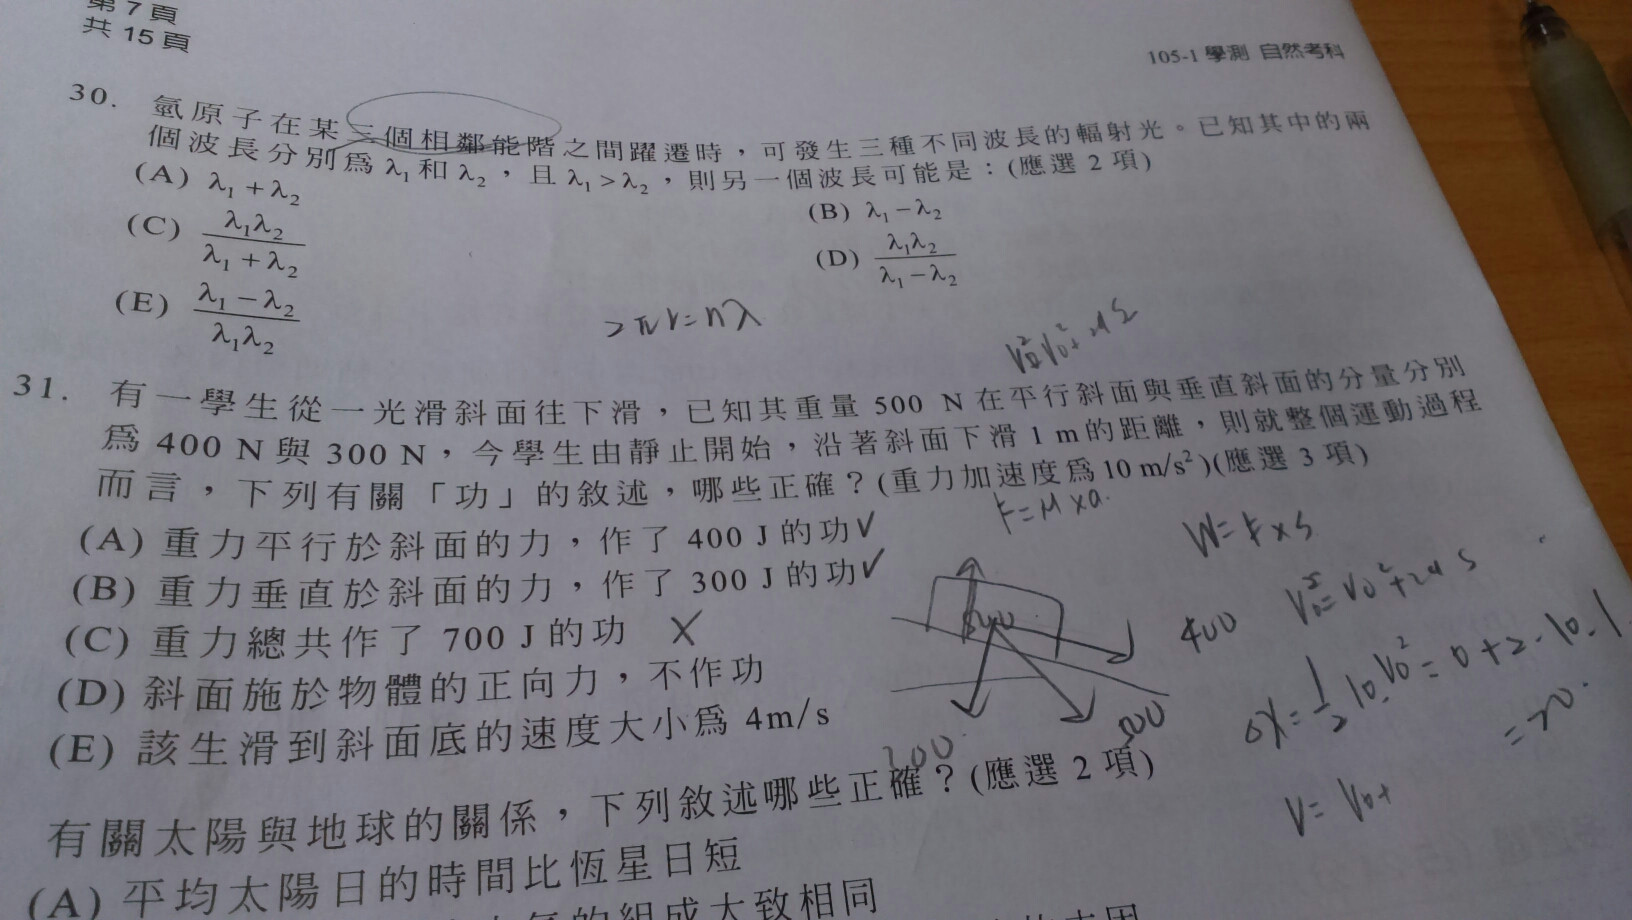 第 7 頁
共 15 頁
105-1 學測 自然考科
30. 氫原子在某三個相鄰能階之間躍遷時，可發生三種不同波長的輻射光。已知其中的兩
個波長分別為 λ₁ 和 λ₂，且 λ₁ > λ₂，則另一個波長可能是：(應選 2 項)
(A) λ₁ + λ₂
(B) λ₁ − λ₂
(C) λ₁λ₂ / λ₁ + λ₂
(D) λ₁λ₂ / λ₁ − λ₂
(E) λ₁ − λ₂ / λ₁λ₂
2πr=nλ
31. 有一學生從一光滑斜面往下滑，已知其重量 500 N 在平行斜面與垂直斜面的分量分別
為 400 N 與 300 N，今學生由靜止開始，沿著斜面下滑 1 m 的距離，則就整個運動過程
而言，下列有關「功」的敘述，哪些正確？(重力加速度為 10 m/s²)(應選 3 項)
F=M×a.
(A) 重力平行於斜面的力，作了 400 J 的功✓
W=F×S
(B) 重力垂直於斜面的力，作了 300 J 的功✓
(C) 重力總共作了 700 J 的功 X
400
(D) 斜面施於物體的正向力，不作功
(E) 該生滑到斜面底的速度大小為 4m/s
= 20.
有關太陽與地球的關係，下列敘述哪些正確？(應選 2 項)
(A) 平均太陽日的時間比恆星日短
的組成大致相同